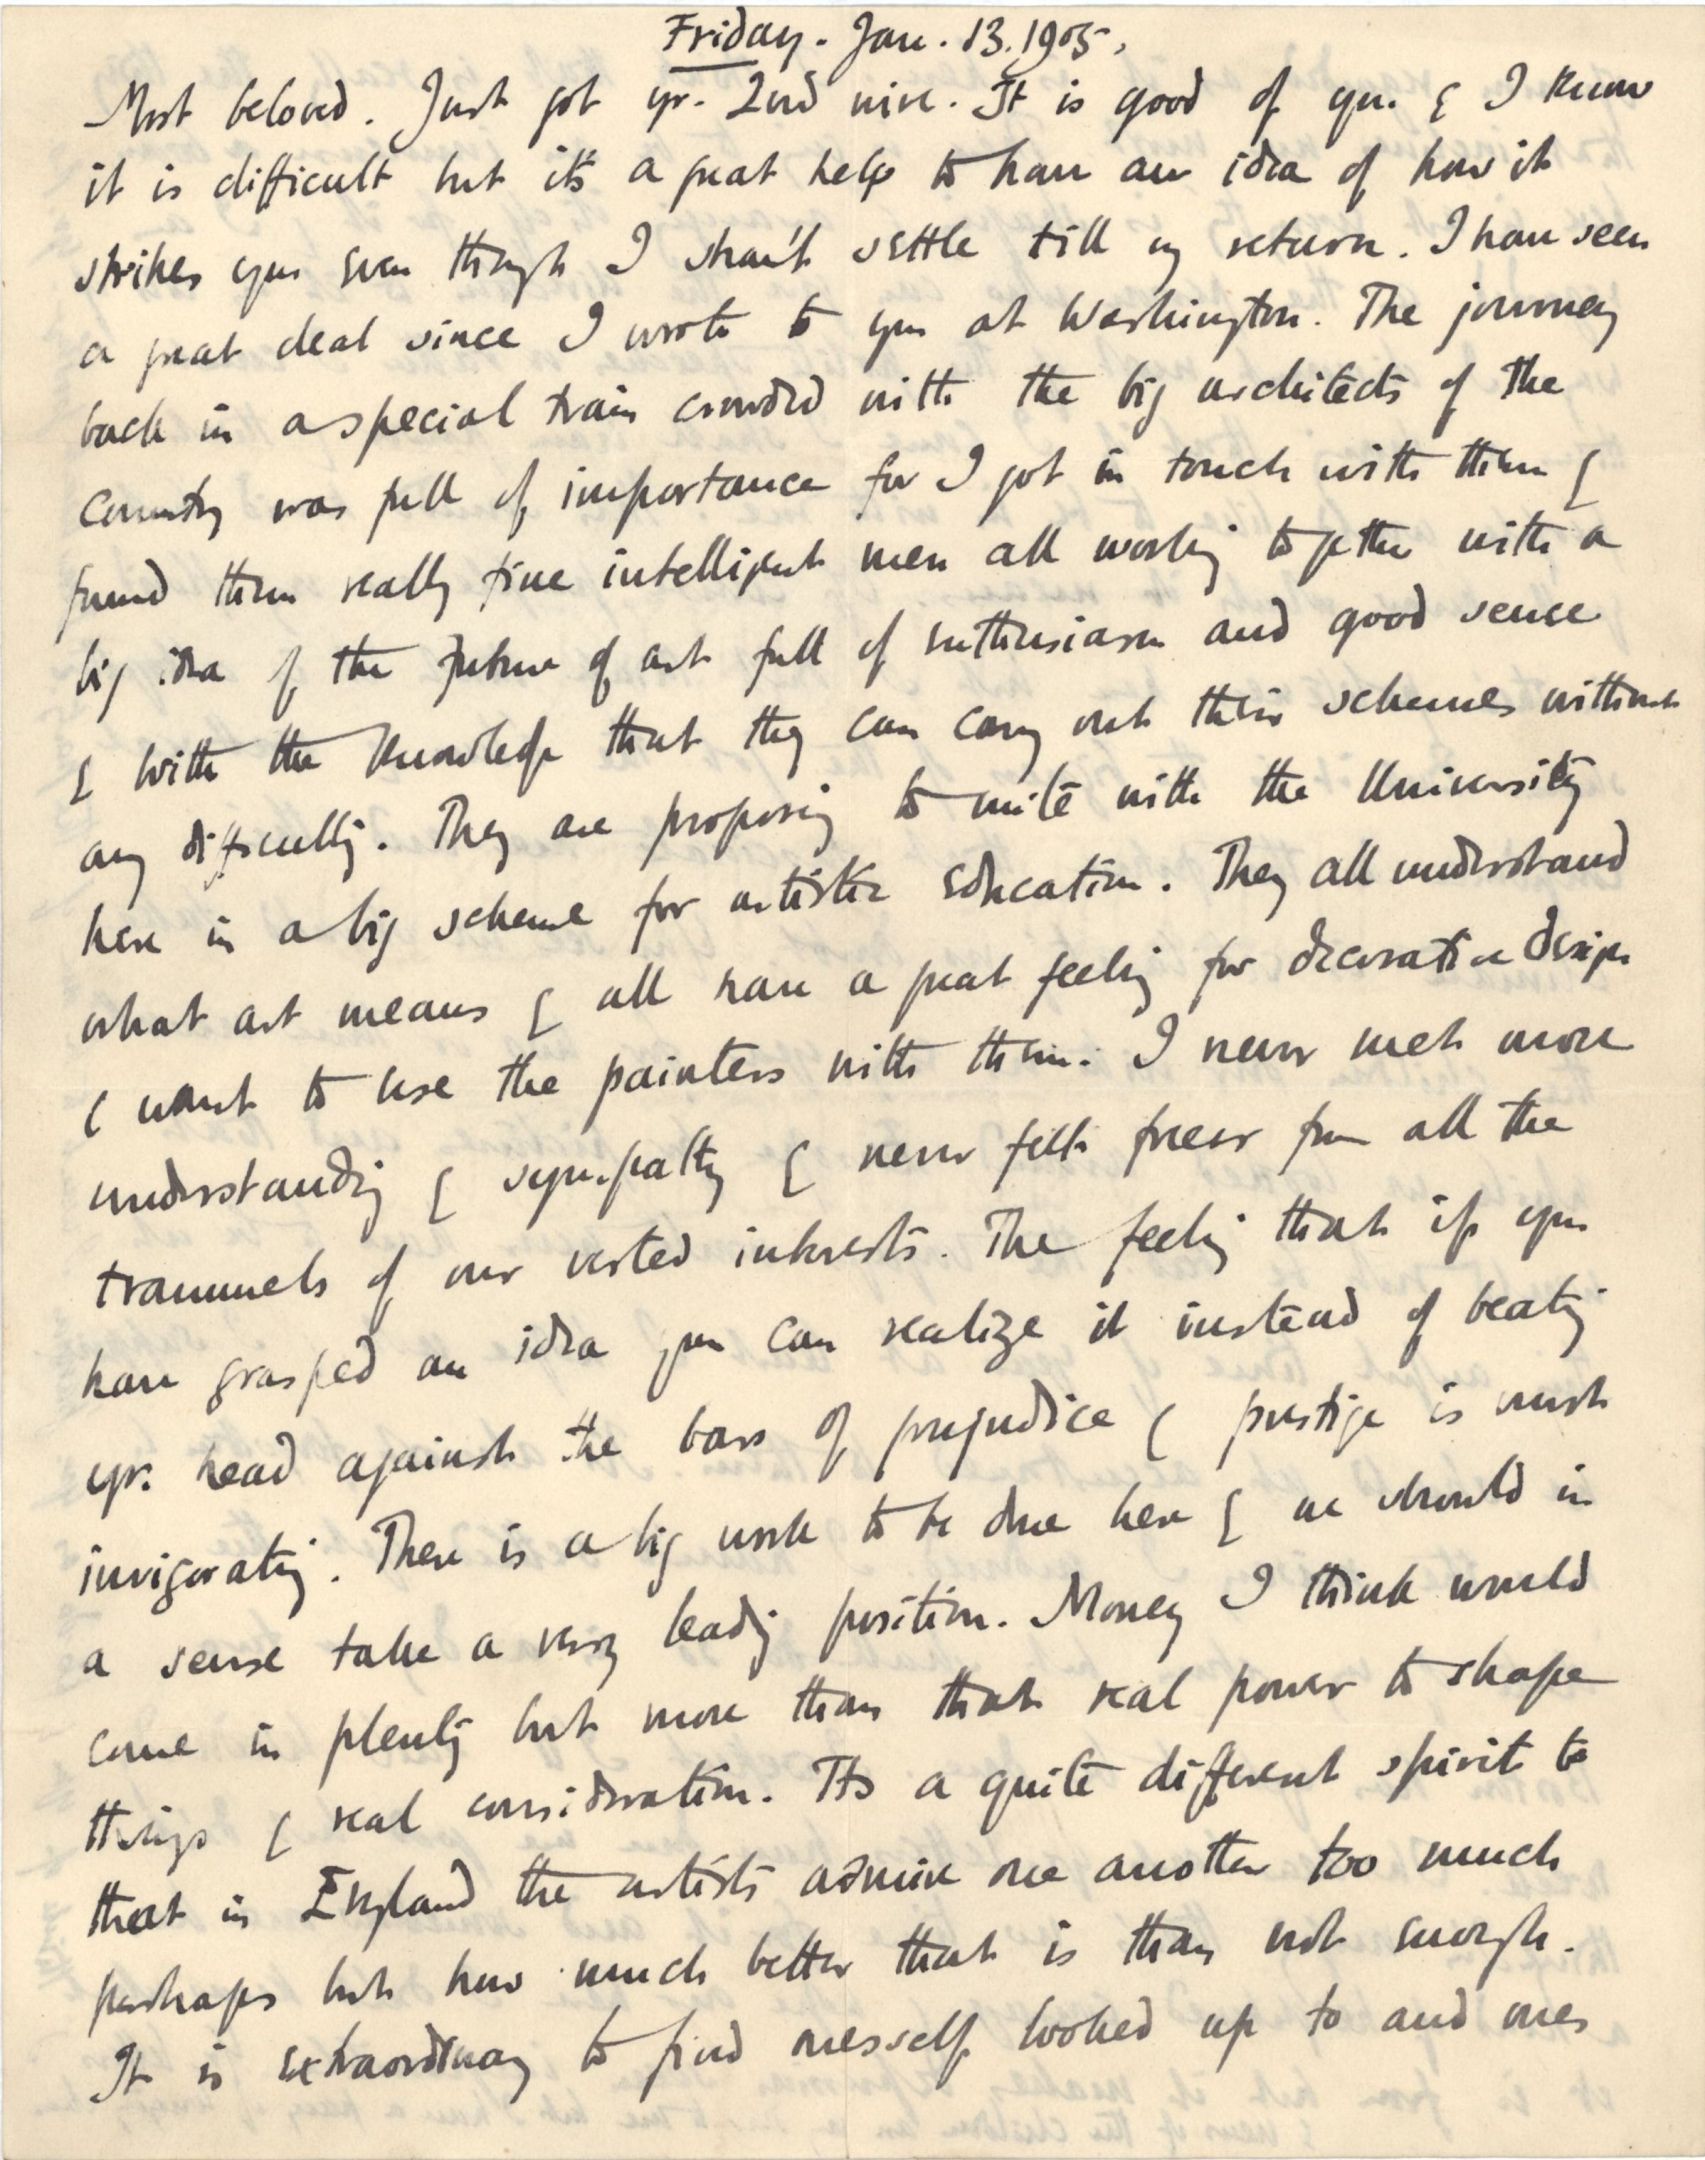 Friday. Jan. 13. 1905.
Most beloved. Just got yr. 2nd wire. It is good of you & I know
it is difficult but its a great help to have an idea of how it
strikes you even though I shan't settle till my return. I have seen
a great deal since I wrote to you at Washington. The journey
back in a special train crowded with the big architects of the
country was full of importance for I got in touch with them &
found them really fine intelligent men all working together with a
big idea of the future of art full of enthusiasm and good sense
& with the knowledge that they can carry out their schemes without
any difficulty. They are proposing to unite with the University
here in a big scheme for artistic education. They all understand
what art means & all have a great feeling for decorative design
& want to use the painters with them. I never met more
understanding & sympathy & never felt freer from all the
trammels of our vested interests. The feeling that if you
have grasped an idea you can realize it instead of beating
yr. head against the bars of prejudice & prestige is most
invigorating. There is a big work to be done here & we should in
a sense take a very leading position. Money I think would
come in plenty but more than that real power to shape
things & real consideration. Its a quite different spirit to
that in England the artists admire one another too much
perhaps but how much better that is than not enough.
It is extraordinary to find onesself looked up to and ones